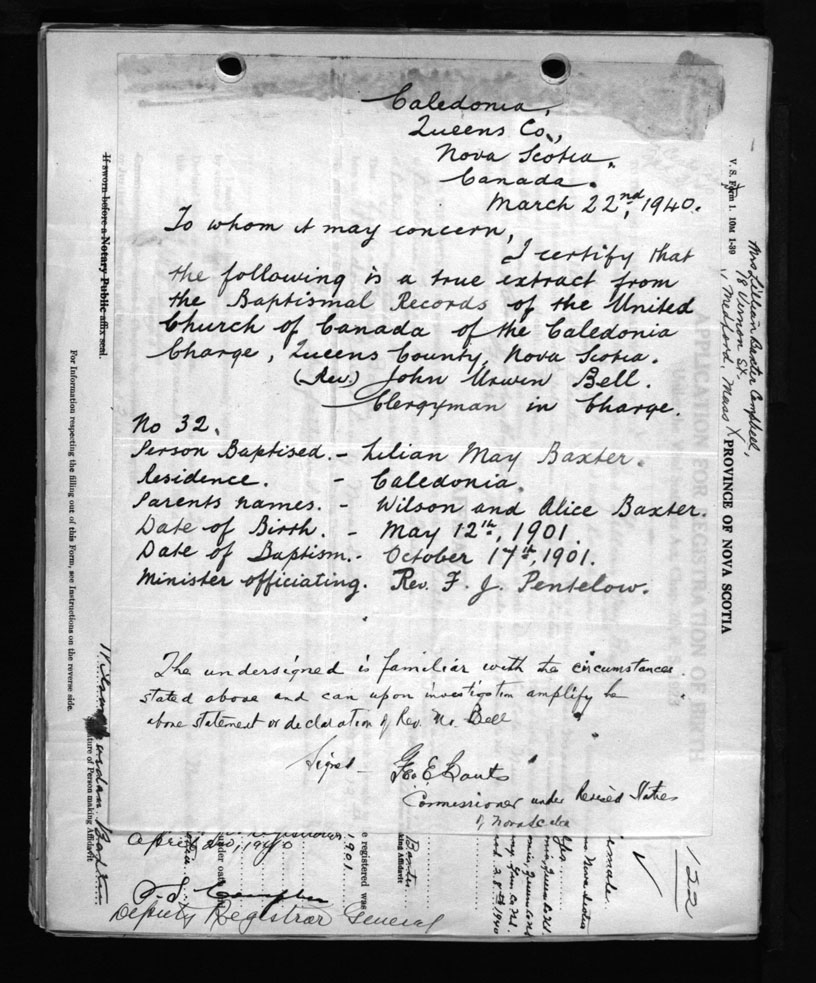 Caledonia,
Queens Co.,
Nova Scotia,
Canada.
March 22nd, 1940.
To whom it may concern,
I certify that
the following is a true extract from
the Baptismal Records of the United
Church of Canada of the Caledonia
Charge, Queens County, Nova Scotia.
(Rev.) John Urwin Bell.
Clergyman in Charge.
No 32.
Person Baptised. - Lilian May Baxter.
Residence. - Caledonia.
Parents names. - Wilson and Alice Baxter.
Date of Birth. - May 12th, 1901.
Date of Baptism. - October 17th, 1901.
Minister officiating. Rev. F. J. Pentelow.
The undersigned is familiar with the circumstances
stated above and can upon investigation amplify the
above statement or declaration of Rev. Mr. Bell
Signed -
Commissioner under Revised Statutes
of Nova Scotia
April 2nd, 1940
Deputy Registrar General
If sworn before a Notary Public affix seal.
For Information respecting the filling out of this Form, see Instructions on the reverse side.
Baxter
ture of Person making Affidavit
1901
e registered was
Baxter
king Affidavit
Yes
Nova Scotia
emale
122
V. S. Form 1. 10M 1-39
PROVINCE OF NOVA SCOTIA
APPLICATION FOR REGISTRATION OF BIRTH
Mrs Lillian Baxter Campbell,
18 Vernon St.
Medford, Mass